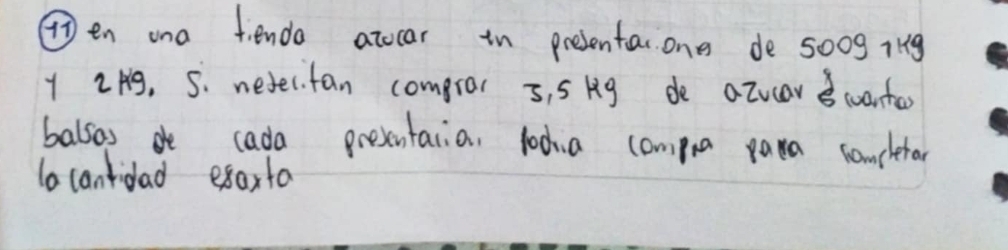 11 en una tienda azucar en presentaciones de 500g 1Kg
y 2 Kg. Si nesesitan comprar 3,5 Kg de azucar ¿cuantas
balsas de cada presentacia. Podria compra para completar
la cantidad esaxta